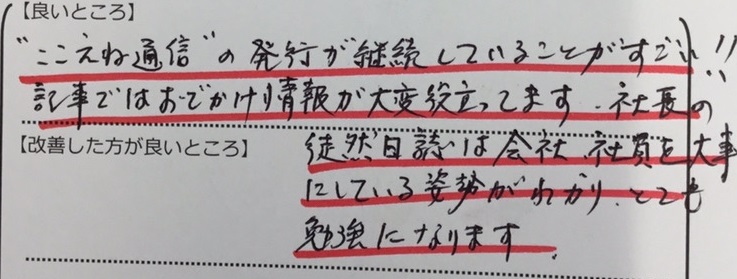 【良いところ】
"ここえね通信"の発行が継続していることがすごい!!
記事ではおでかけ情報が大変役立ってます。社長の
【改善した方が良いところ】
徒然日誌は会社、社員を大事
にしている姿勢がわかり、とても
勉強になります。